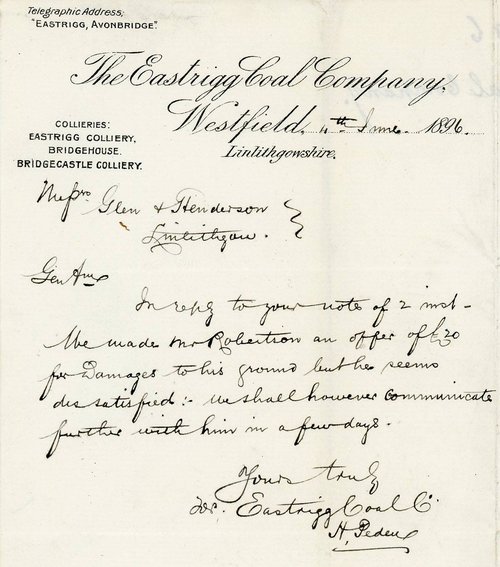 Telegraphic Address;
"EASTRIGG, AVONBRIDGE".
The Eastrigg Coal Company,
Westfield, 4th June 1896.
Linlithgowshire.
COLLIERIES:
EASTRIGG COLLIERY,
BRIDGEHOUSE.
BRIDGECASTLE COLLIERY.
Messrs Glen & Henderson
Linlithgow.
Gentn
In reply to your note of 2 inst -
We made Mr Robertson an offer of £20
for Damages to his ground but he seems
dissatisfied:- We shall however communicate
further with him in a few days.
Yours truly
for. Eastrigg Coal Co.
H. Peden